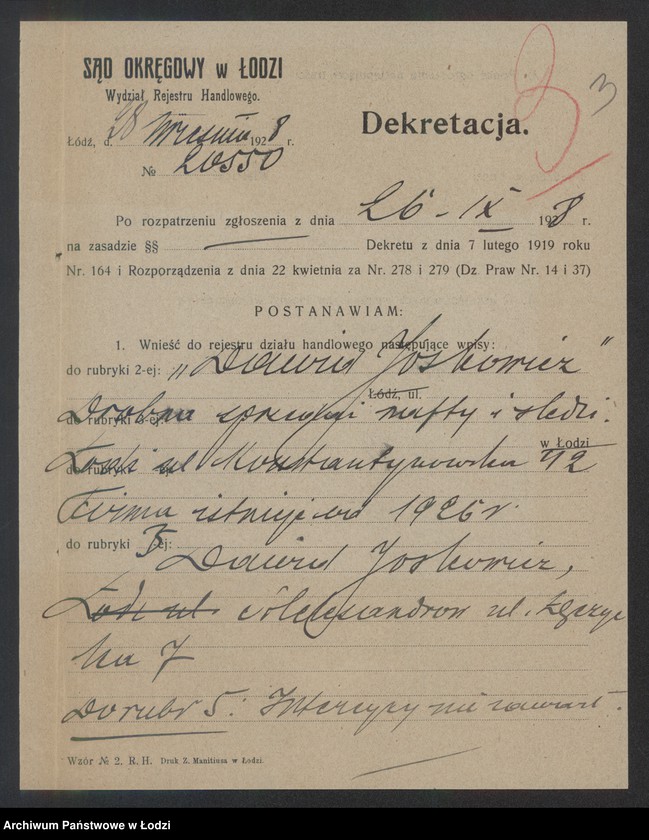 SĄD OKRĘGOWY w ŁODZI
Wydział Rejestru Handlowego.
3
Łódź, d. 28 Września 1928 r.
№ 20550
Dekretacja.
Po rozpatrzeniu zgłoszenia z dnia 26-IX 1928 r.
na zasadzie §§ Dekretu z dnia 7 lutego 1919 roku
Nr. 164 i Rozporządzenia z dnia 22 kwietnia za Nr. 278 i 279 (Dz. Praw Nr. 14 i 37)
POSTANAWIAM:
1. Wnieść do rejestru działu handlowego następujące wpisy:
do rubryki 2-ej: „Dawid Joskowicz"
Łódź, ul.
do rubryki 3-ej: Drobna sprzedaż nafty i śledzi.
w Łodzi
do rubryki Łódź ul Konstantynowska 112
Firma istnieje od 1926 r.
do rubryki 3 ej: Dawid Joskowicz,
Łódź ul Aleksandrów ul. Łęczyc
ka 7
Do rubr 5: Intercyzy nie zawarł.
Wzór № 2. R. H. Druk Z. Manitiusa w Łodzi.
Archiwum Państwowe w Łodzi